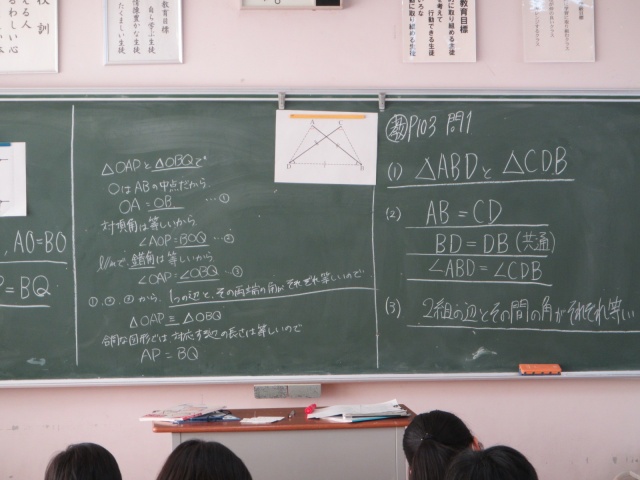 校訓
教育目標
自ら学ぶ生徒
たくましい生徒
教育目標
行動できる生徒
に取り組める生徒
, AO=BO
P=BQ
△OAPと△OBQで
OはABの中点だから
OA=OB …①
対頂角は等しいから
∠AOP=∠BOQ …②
l//mで、錯角は等しいから
∠OAP=∠OBQ …③
①,②,③から、1つの辺と、その両端の角がそれぞれ等しいので
△OAP≡△OBQ
合同な図形では対応する辺の長さは等しいので
AP=BQ
教P103 問1
(1) △ABDと△CDB
(2) AB=CD
BD=DB(共通)
∠ABD=∠CDB
(3) 2組の辺とその間の角がそれぞれ等しい